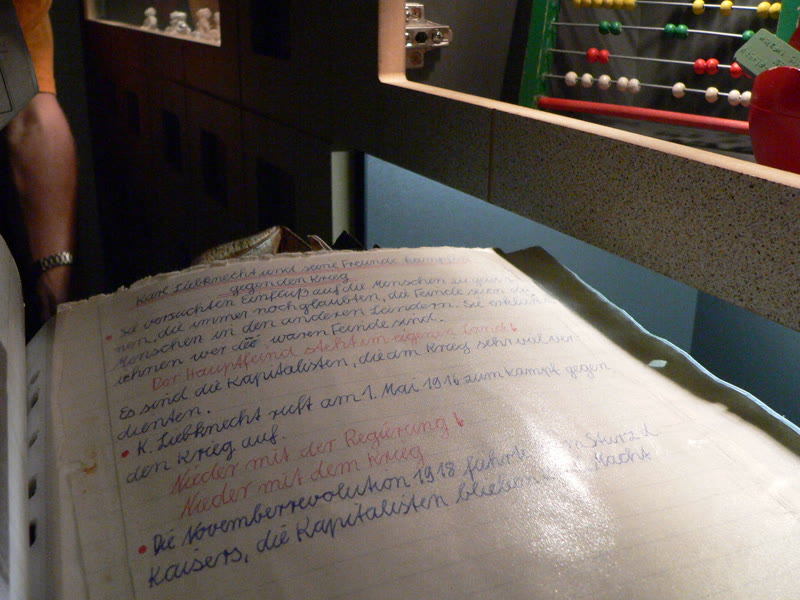 Karl Liebknecht und seine Freunde kämpfen
gegen den Krieg
• Sie versuchten Einfluß auf die Menschen zu
nen, die immer noch glaubten, die Feinde
Menschen in den anderen Ländern. Sie
ihnen wer die waren Feinde sind.
Der Hauptfeind steht im eigenen Land!
Es sind die Kapitalisten, die am Krieg sehr viel ver-
dienten.
• K. Liebknecht ruft am 1. Mai 1916 zum Kampf gegen
den Krieg auf.
Nieder mit der Regierung!
Nieder mit dem Krieg
• Die Novemberrevolution 1918 führte Sturz d
Kaisers, die Kapitalisten blieben Macht